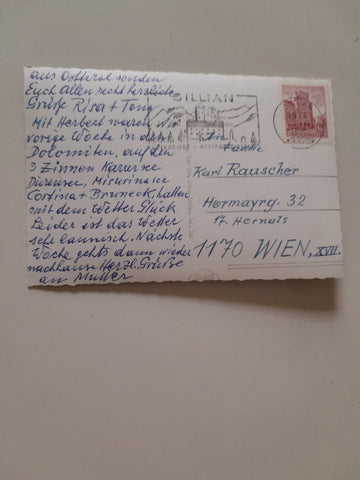 aus Osttirol senden
Euch Allen recht herzliche
Grüße Risa + Toni
Mit Herbert waren wir
vorige Woche in den
Dolomiten, auf den
3 Zinnen Karersee
Dürensee, Misurinasee
Cortina + Bruneck, hatten
mit dem Wetter Glück
Leider ist das Wetter
sehr launisch. Nächste
Woche gehts dann wieder
nachhause Herzl. Grüße
an Mutter
SILLIAN
An
Familie
Karl Rauscher
Hormayrg. 32
A. Hernals
1170 WIEN, XVII.